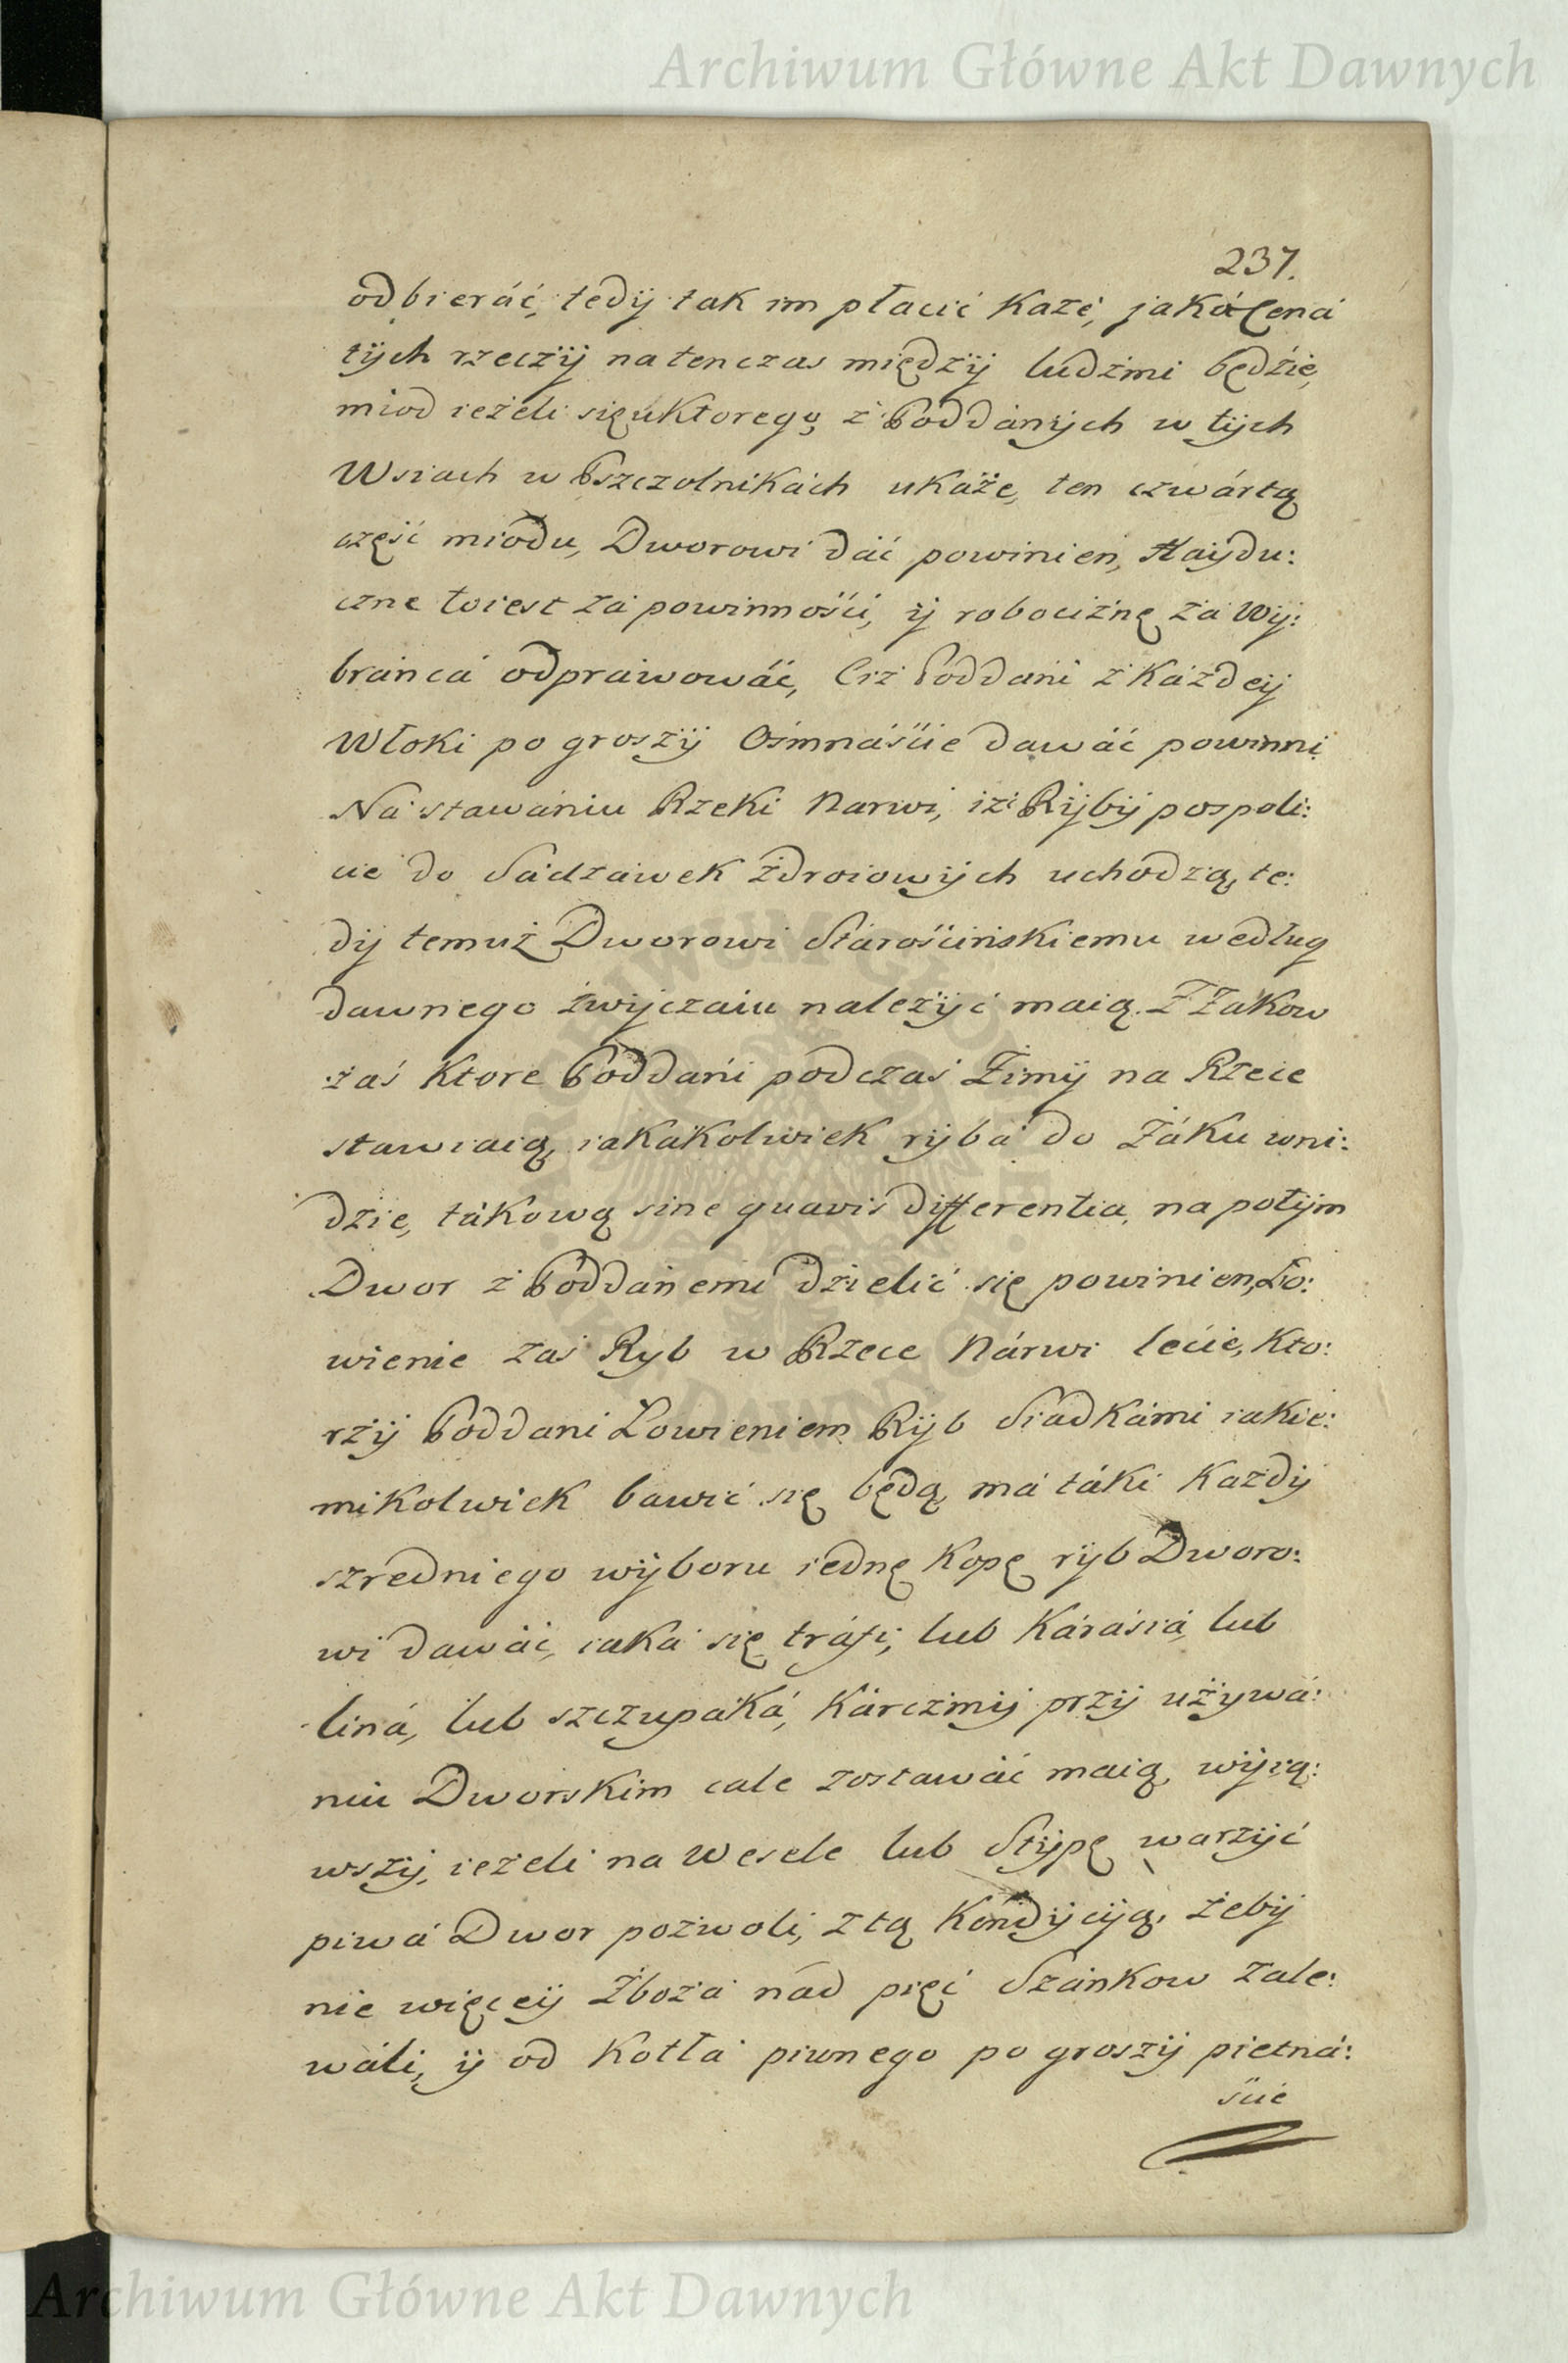 Archiwum Główne Akt Dawnych
237.
odbieráć, tedÿ tak im płacić każe, jaká Cená
tÿch rzeczÿ natenczas międzÿ ludźmi będzie,
miod ieżeli się uktorego z Poddánÿch w tÿch
Wsiach w Pszczolnikách ukaże, ten czwártą
część miodu, Dworowi dáć powinien, Haÿdu:
czne toiest zá powinnośći, ÿ robociznę zá Wÿ:
bráńcá odpráwowáć, Ciż Poddáni z káżdeÿ
Włoki po groszÿ Ośmnáśćie dawáć powinni
Ná stawániu Rzeki Narwi, iż Rÿbÿ pospoli:
cie do Sádzáwek zdroiowÿch uchodzą, te:
dÿ temuż Dworowi Stárośćińskiemu według
dawnego zwÿczaiu należÿć maią. Z Żakow
záś ktore Poddáni podczas Zimÿ na Rzece
stawiaią, iakákolwiek rÿbá do Żáku wni:
dzie, tákową sine quavis differentia, na połÿm
Dwor z Poddánemi dzielić się powinien, Ło:
wienie zaś Ryb w Rzece Nárwi lećie, kto:
rzÿ Poddani Łowieniem Rÿb Siadkámi iakie:
mikolwiek bawić się będą, má táki każdÿ
szredniego wÿboru iednę kopę rÿb Dworo:
wi dawáć, iaká się tráfi, lub Kárásiá, lub
liná, lub szczupaká, Kárczmÿ przÿ używá:
niu Dworskim cale zostawáć maią, wÿią:
wszÿ, ieżeli na Wesele lub Stÿpę warzÿć
piwá Dwor pozwoli, z tą Kondÿcÿą, żebÿ
nie więceÿ Zbożá nád pięć Szánkow zale:
wáli, ÿ od Kotłá piwnego po groszÿ pietná:
śćie
Archiwum Główne Akt Dawnych